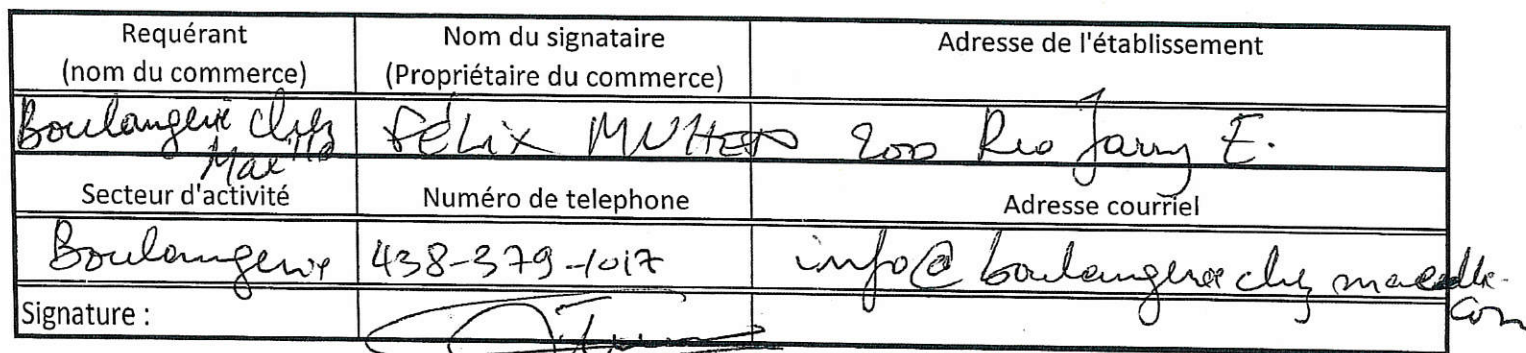 Requérant
(nom du commerce)
Nom du signataire
(Propriétaire du commerce)
Adresse de l'établissement
Boulangerie chez
FÉLIX 200 Jarry E.
Secteur d'activité
Numéro de telephone
Adresse courriel
Boulangerie
438-379-1017
info@boulangerie chez
.com
Signature :